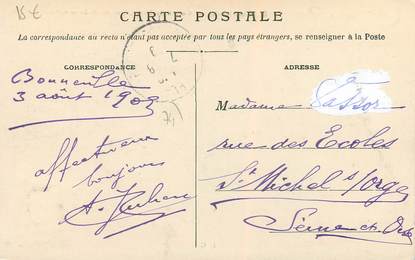 15 €
CARTE POSTALE
La correspondance au recto n'étant pas acceptée par tous les pays étrangers, se renseigner à la Poste
CORRESPONDANCE
ADRESSE
Bonneville
3 août 1909
affectueux
toujours
à
Madame
rue des Ecoles
St Michel s/orge
Seine et Oise